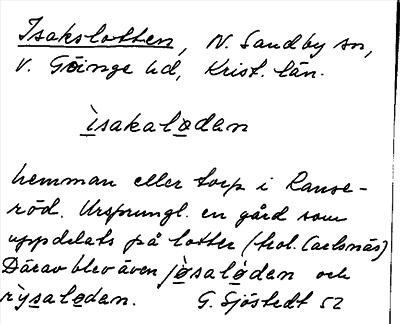 Isakslotten, N. Sandby sn,
V. Göinge hd, Krist. län.
ìsakalọdan
hemman eller torp i Ranse-
röd. Ursprungl. en gård som
uppdelats på lotter (trol. Carlsnäs)
Därav blev även jọ̀salọdan och
rỳsalọdan. G. Sjöstedt 52